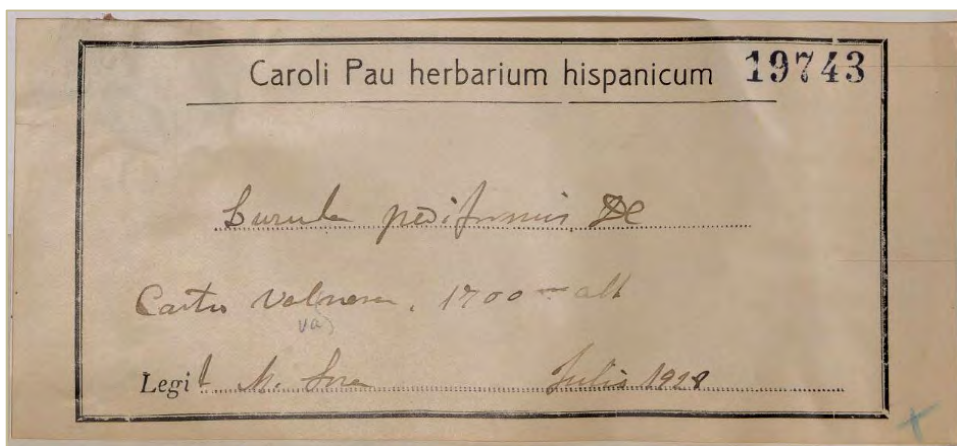 Caroli Pau herbarium hispanicum 19743
Luzula pediformis DC
Castro Valnera, 1700 m alt
Legit M. Julio 1928